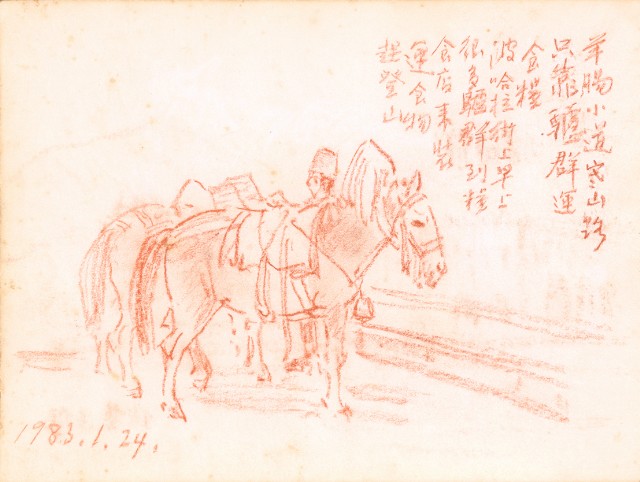 羊腸小道窄山路
只靠驢群運
食糧
波哈拉街上早上
很多驢群到糧
食店來裝
運食物
趕登山
1983.1.24.